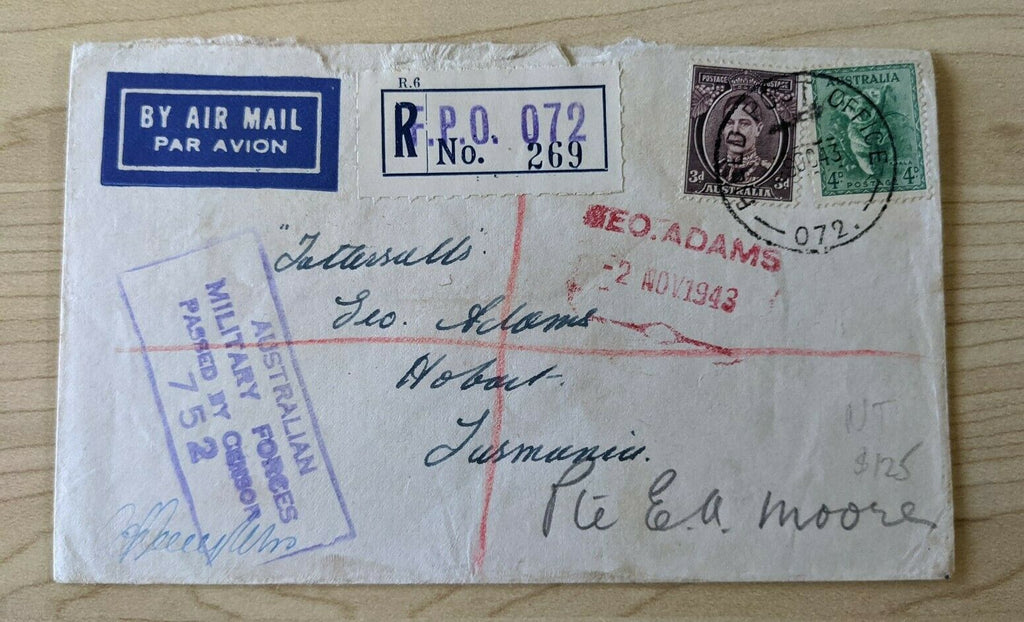 BY AIR MAIL
PAR AVION
R.6
R F.P.O. 072
No. 269
POSTAGE POSTAGE
3d 3d
AUSTRALIA
AUSTRALIA
4D POSTAGE 4D
FIELD POST OFFICE
072.
GEO. ADAMS
-2 NOV 1943
"Tattersalls"
Geo. Adams
Hobart.
Tasmania.
AUSTRALIAN
MILITARY FORCES
PASSED BY CENSOR
752
NT
$125
Pte E.A. Moore